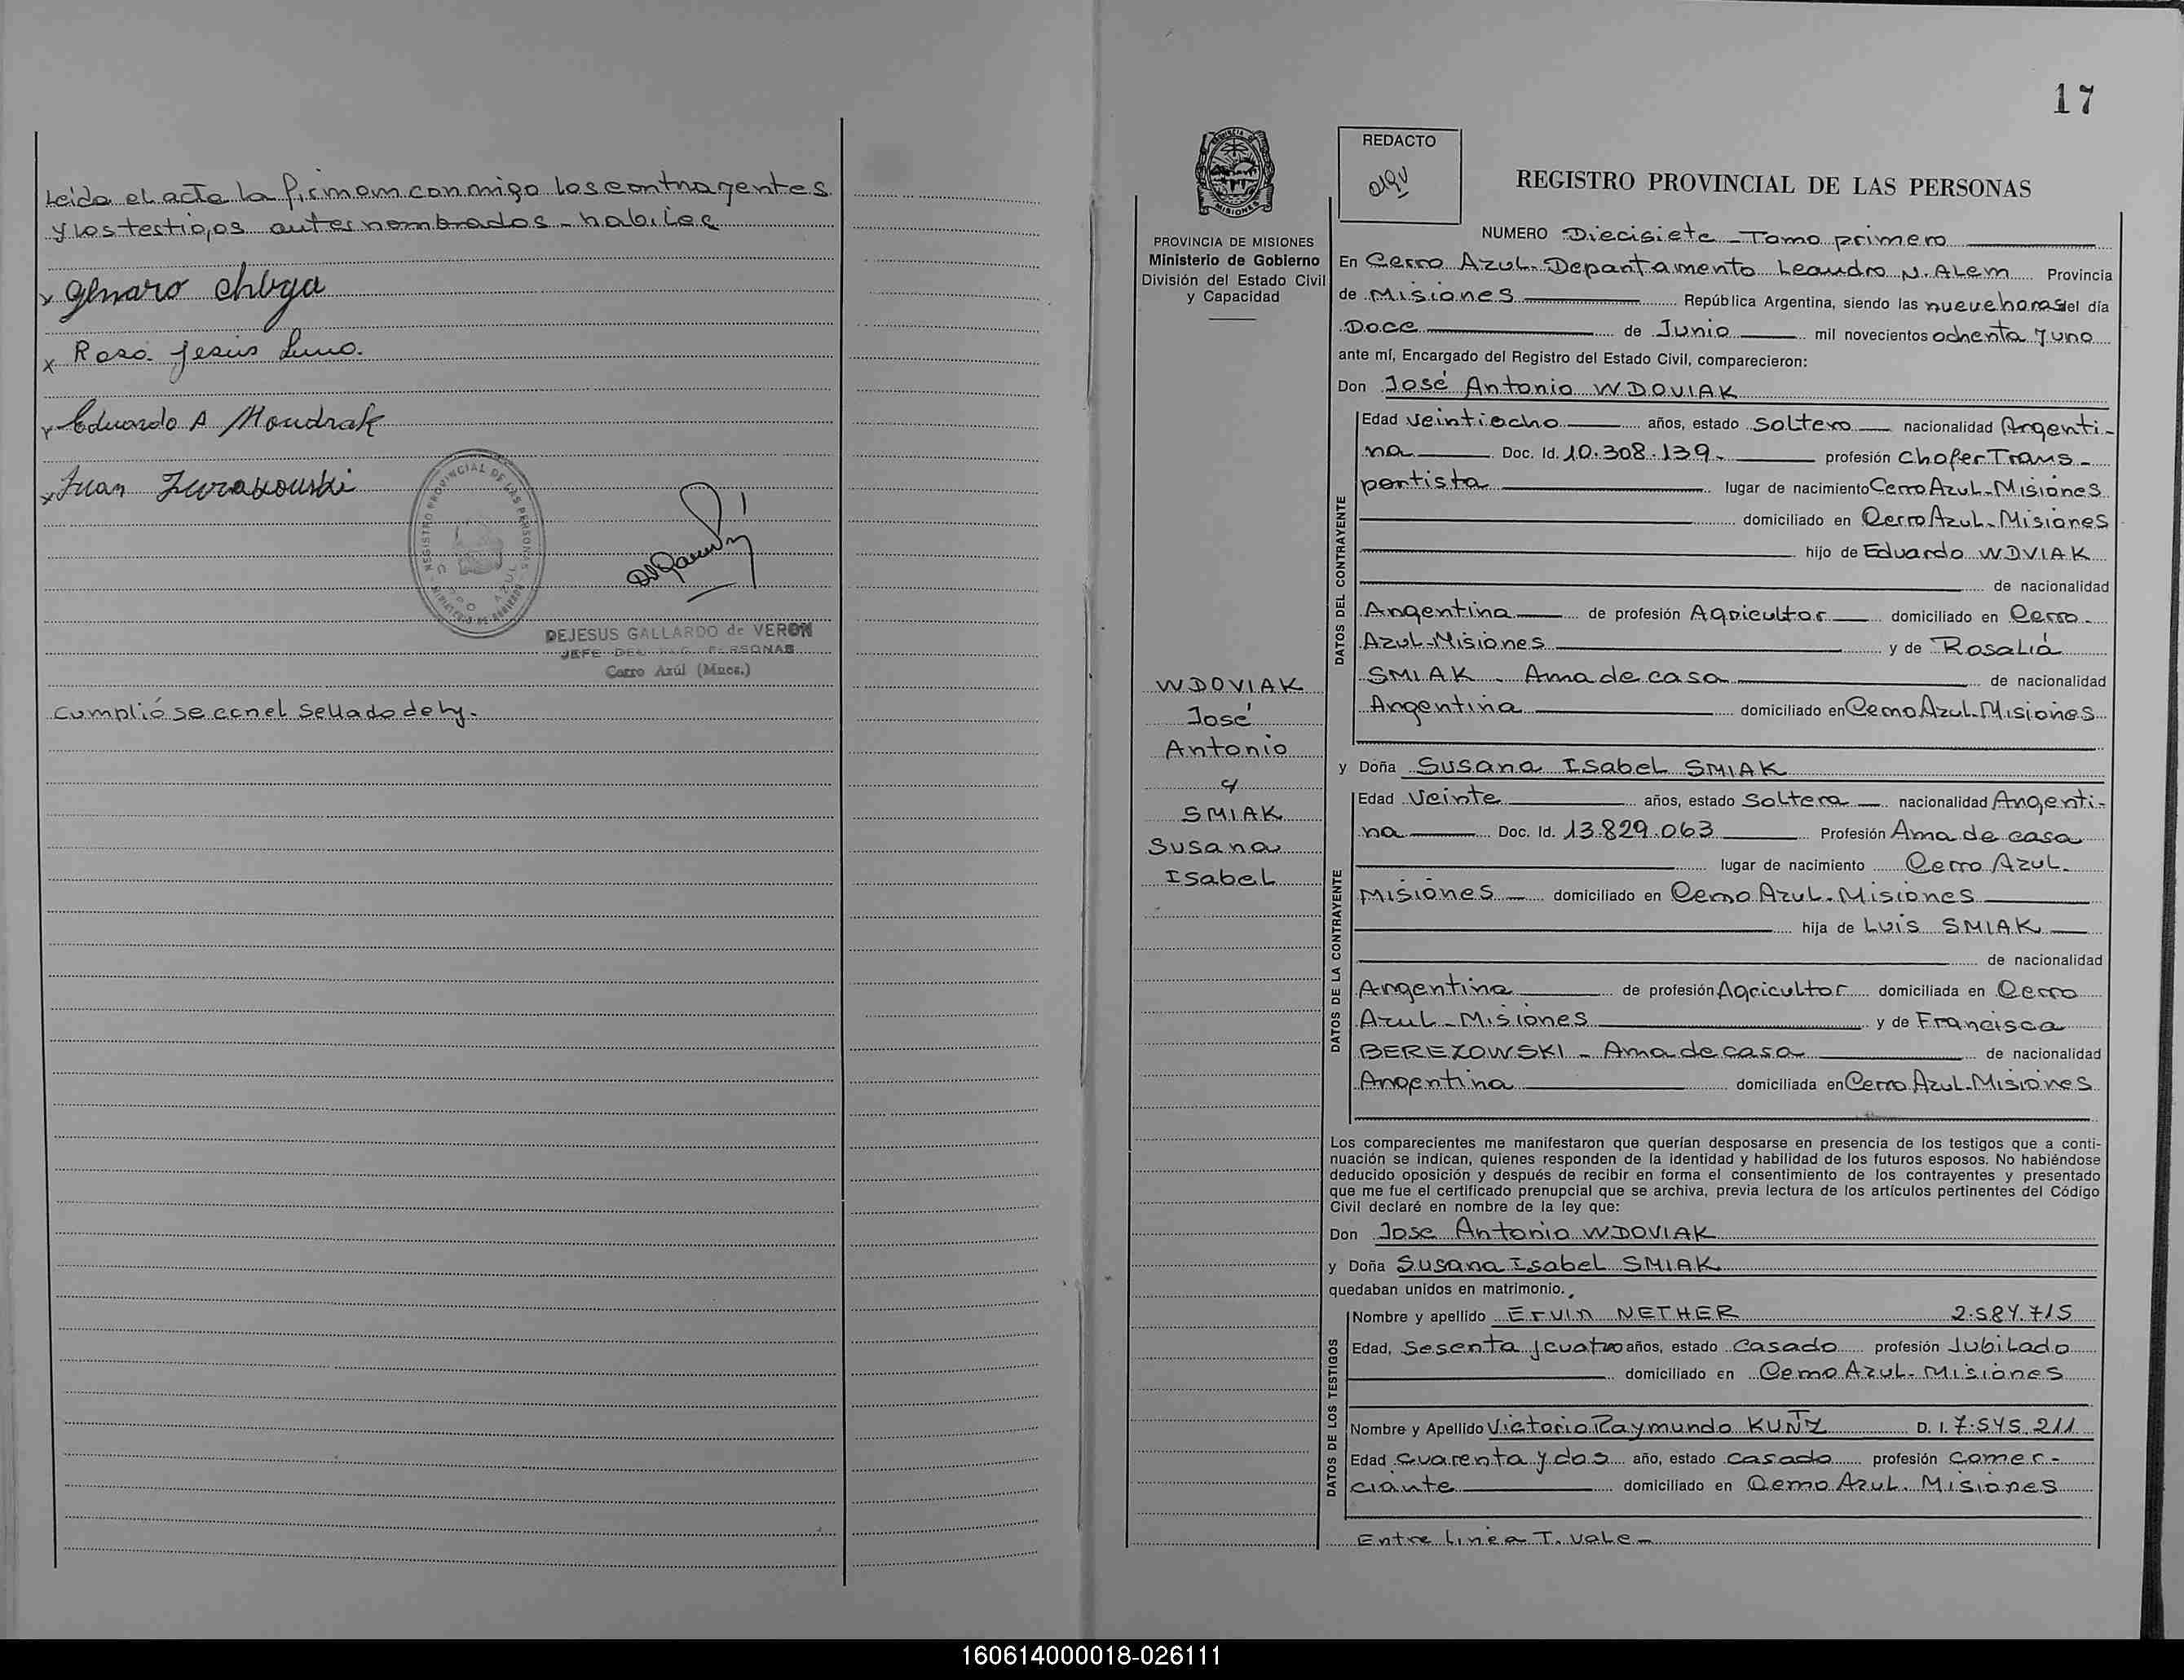 Leida el acta la firman conmigo los contrayentes
y los testigos antes nombrados - habiles
x Genaro Chbga
x Rosa Jesús Luno.
x Eduardo A Moudrak
x Juan Zurakouski
REGISTRO PROVINCIAL DE LAS PERSONAS
DEJESUS GALLARDO de VERON
JEFE DEL REG. PERSONAS
Cerro Azúl (Mnes.)
Cumplióse con el Sellado de ley.
17
PROVINCIA DE MISIONES
Ministerio de Gobierno
División del Estado Civil
y Capacidad
WDOVIAK
José
Antonio
y
SMIAK
Susana
Isabel
REDACTO
REGISTRO PROVINCIAL DE LAS PERSONAS
NUMERO Diecisiete - Tomo primero
En Cerro Azul - Departamento Leandro N. Alem Provincia
de Misiones República Argentina, siendo las nueve horas del día
Doce de Junio mil novecientos ochenta y uno
ante mí, Encargado del Registro del Estado Civil, comparecieron:
Don José Antonio WDOVIAK
DATOS DEL CONTRAYENTE
Edad veintiocho años, estado Soltero nacionalidad Argenti-
na Doc. Id. 10.308.139.- profesión Chofer Trans-
portista lugar de nacimiento Cerro Azul - Misiones
domiciliado en Cerro Azul - Misiones
hijo de Eduardo WDVIAK
de nacionalidad
Argentina de profesión Agricultor domiciliado en Cerro
Azul - Misiones y de Rosalía
SMIAK - Ama de casa de nacionalidad
Argentina domiciliado en Cerro Azul - Misiones
y Doña Susana Isabel SMIAK
DATOS DE LA CONTRAYENTE
Edad Veinte años, estado Soltera nacionalidad Argenti-
na Doc. Id. 13.829.063 Profesión Ama de casa
lugar de nacimiento Cerro Azul -
Misiones domiciliado en Cerro Azul - Misiones
hija de Luis SMIAK
de nacionalidad
Argentina de profesión Agricultor domiciliada en Cerro
Azul - Misiones y de Francisca
BEREZOWSKI - Ama de casa de nacionalidad
Argentina domiciliada en Cerro Azul - Misiones
Los comparecientes me manifestaron que querían desposarse en presencia de los testigos que a conti-
nuación se indican, quienes responden de la identidad y habilidad de los futuros esposos. No habiéndose
deducido oposición y después de recibir en forma el consentimiento de los contrayentes y presentado
que me fue el certificado prenupcial que se archiva, previa lectura de los artículos pertinentes del Código
Civil declaré en nombre de la ley que:
Don Jose Antonio WDOVIAK
y Doña Susana Isabel SMIAK
quedaban unidos en matrimonio.
DATOS DE LOS TESTIGOS
Nombre y apellido Ervin NETHER 2.584.715
Edad, Sesenta y cuatro años, estado Casado profesión Jubilado
domiciliado en Cerro Azul - Misiones
Nombre y Apellido Victorio Raymundo KUNTZ D. I. 7.545.211
Edad Cuarenta y dos año, estado Casado profesión Comer-
ciante domiciliado en Cerro Azul - Misiones
Entre linea T. vale -
160614000018-026111